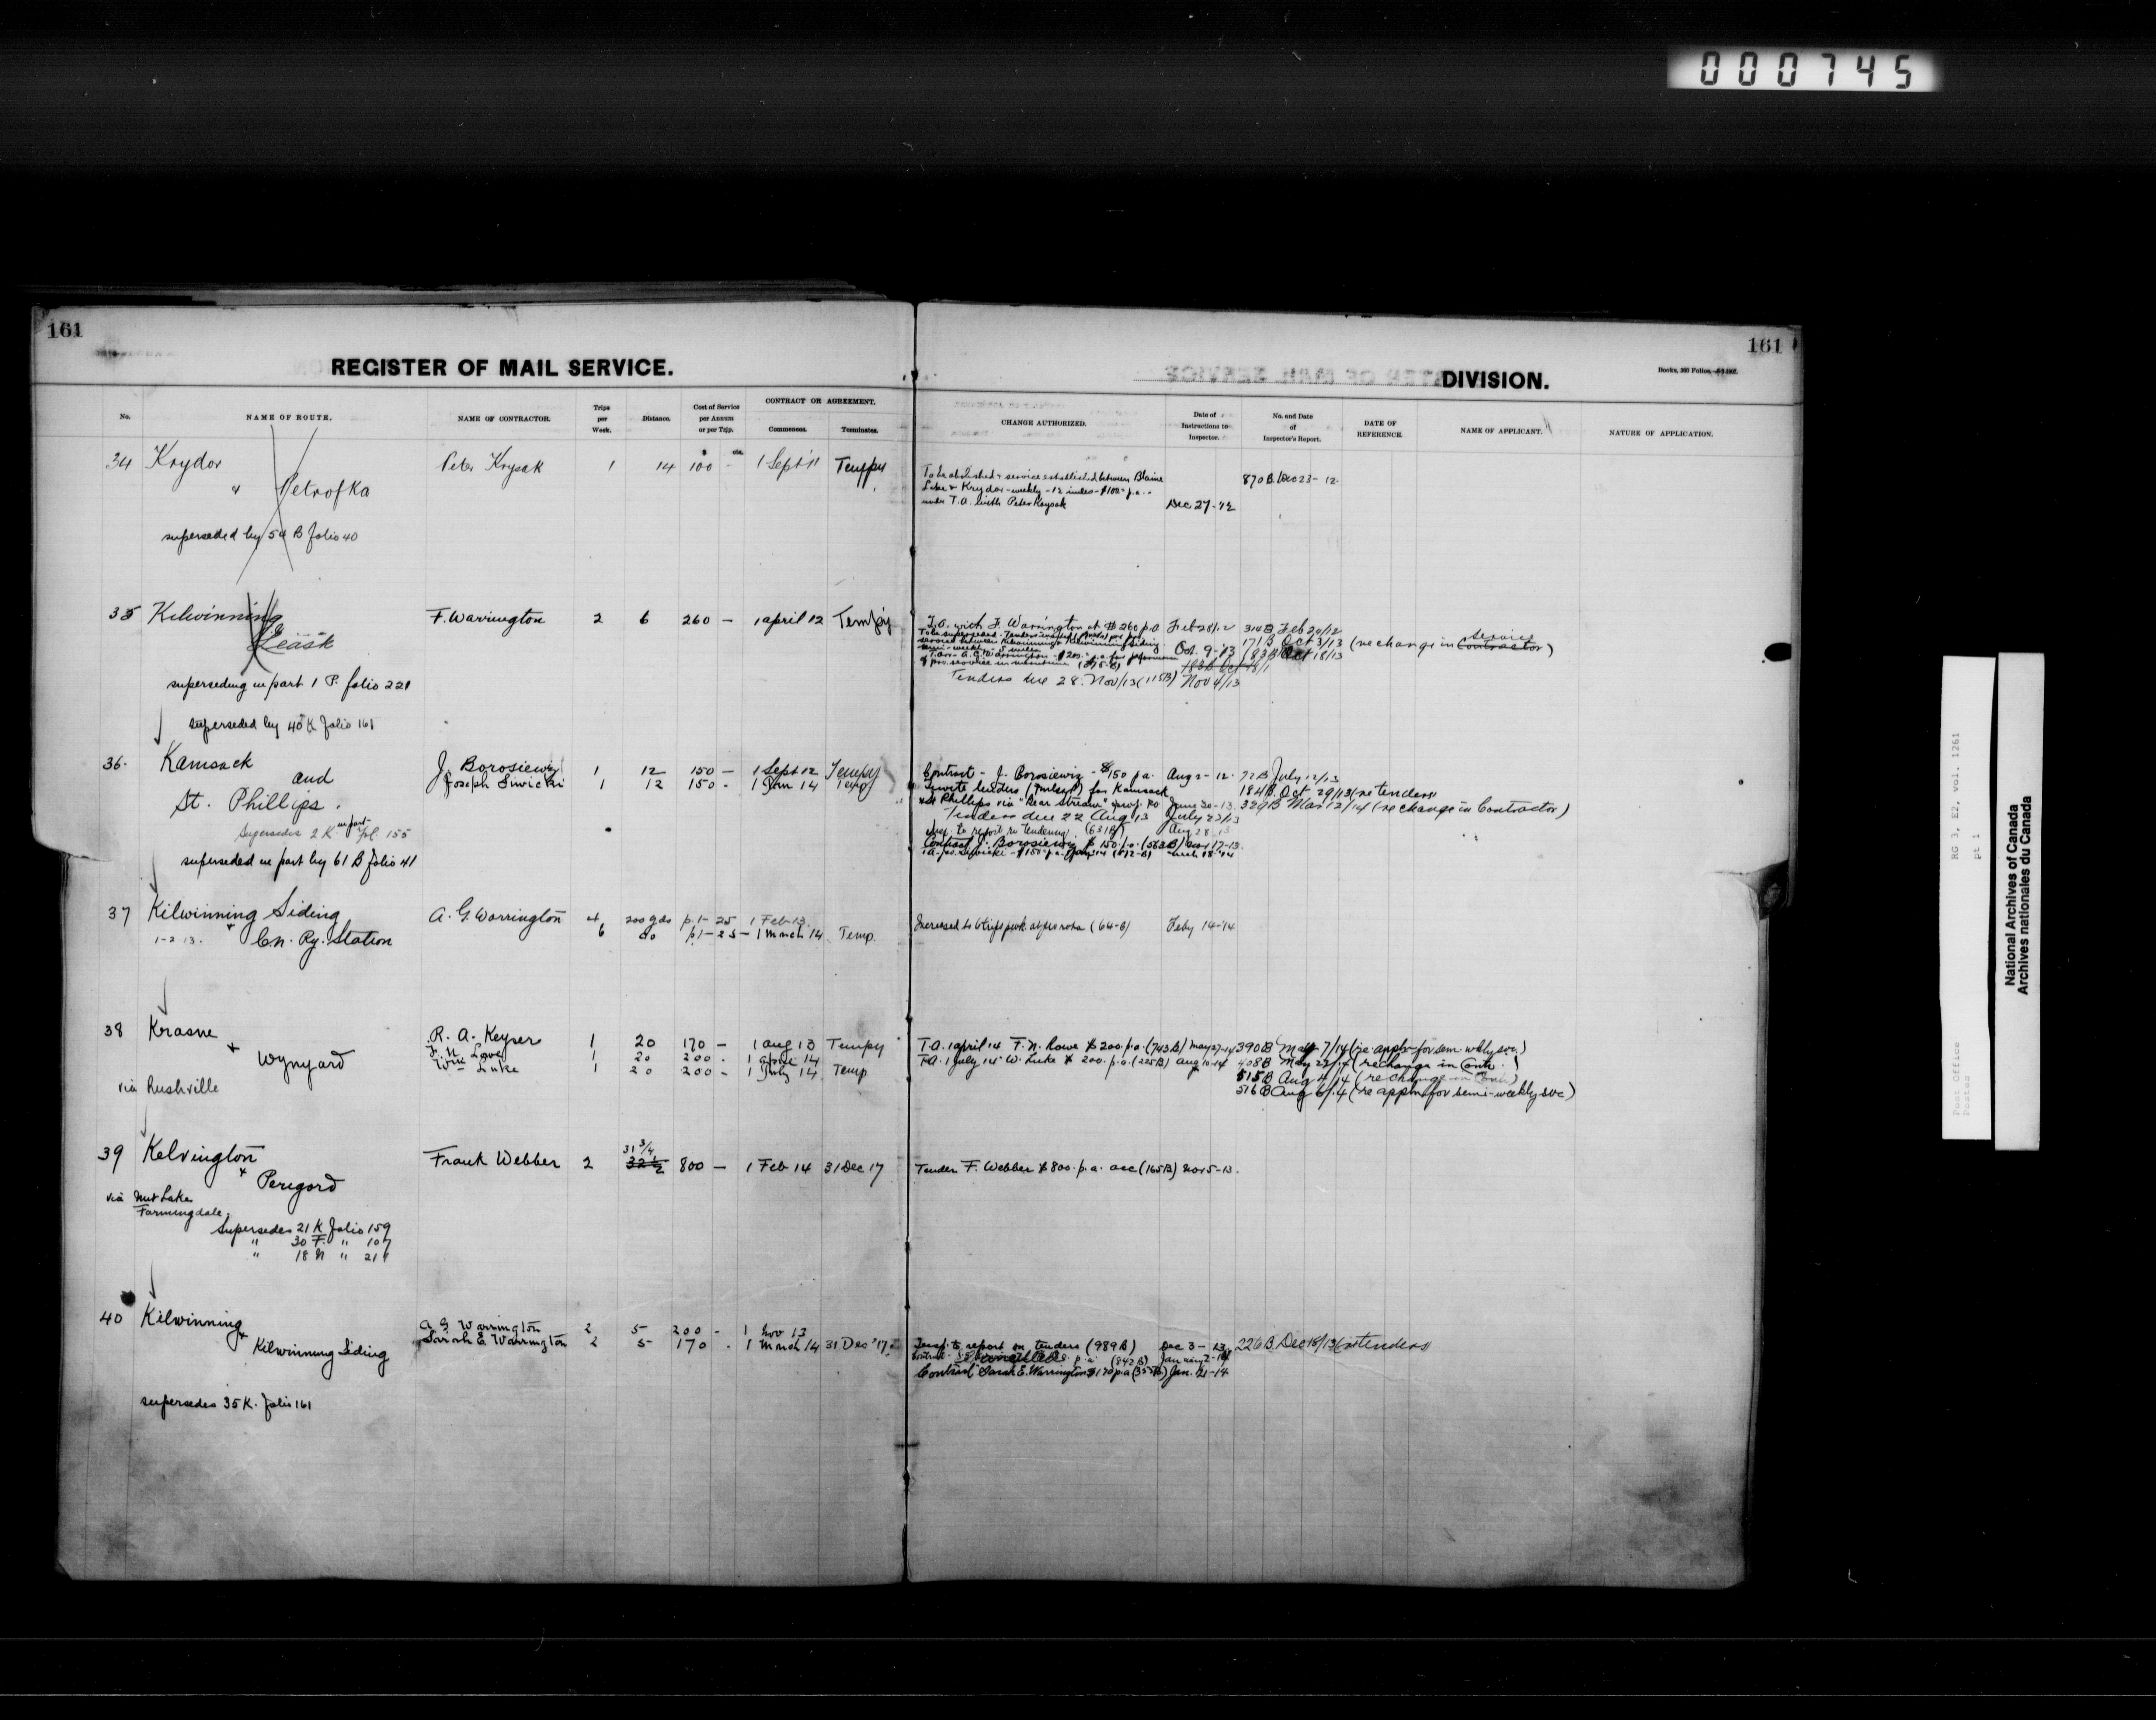 000745
161
REGISTER OF MAIL SERVICE.
No.
NAME OF ROUTE.
NAME OF CONTRACTOR.
Trips per Week.
Distance.
Cost of Service per Annum or per Trip.
CONTRACT OR AGREEMENT.
Commences.
Terminates.
34 Krydor Peter Krysak 1 14 100 — 1 Sept 11 Tempy
& Petrofka
superseded by 54 B folio 40
35 Kilwinning F. Warrington 2 6 260 — 1 april 12 Tempy
& Leask
superseding in part 1 P. folio 221
superseded by 40 K folio 161
36. Kamsack J. Borosiewiz 1 12 150 — 1 Sept 12 Tempy
and Joseph Siwicki 1 12 150 - 1 Jan 14 Temp
St. Phillips.
Supersedes 2 K in part fol. 155
superseded in part by 61 B folio 41
37 Kilwinning Siding A. G. Warrington 4 200 yds p.1- 25 1 Feb 13
1-2 13. & Cn. Ry. Station 6 do p.1-25- 1 March 14 Temp.
38 Krasne R. A. Keyser 1 20 170 — 1 aug 13 Tempy
& Wynyard 1 20 200 . 1 april 14
Wm Luke 1 20 200 - 1 July 14 Temp
via Rushville
39 Kelvington Frank Webber 2 31 3/4 32 1/2 800 — 1 Feb 14 31 Dec 17
& Perigord
via Nut Lake
Farmingdale.
Supersedes 21 K folio 159
" 30 F. " 107
" 18 N " 211
40 Kilwinning A G Warrington 2 5 200 - 1 Nov 13
& Kilwinning Siding Sarah E. Warrington 2 5 170 . 1 March 14 31 Dec '17
supersedes 35 K. folio 161
161
DIVISION.
Books, 300 Folios,
CHANGE AUTHORIZED.
Date of Instructions to Inspector.
No. and Date of Inspector's Report.
DATE OF REFERENCE.
NAME OF APPLICANT.
NATURE OF APPLICATION.
To be abolished & service established between Blaine 870 B Dec 23- 12.
Lake & Krydor - weekly - 12 miles - $100.- p.a. -
under T.A. with Peter Krysak Dec 27-12
T.A. with F. Warrington at $260 p.a. Feb 28/12 314B Feb 24/12
171 B Oct 3/13 (re change in service Contractor)
Oct. 9-13 183 B Oct 18/13
Tenders due 28. Nov/13 (115B) Nov 4/13
Contract - J. Borosiewiz - $150 p.a. Aug 2- 12. 72 B July 12/13
Invite tenders for Kamsack 184 B. Oct 29/13 (re tenders)
& St Phillips via "Bear Stream" June 30-13 329 B Mar 12/14 (re change in Contractor)
Tenders due 22 Aug 13 July 23/13
to report re tendering. (631B) Aug 28 13
Contract J. Borosiewiz $150. p.a. (563B) Nov 17-13.
Increased to 6 trips p.wk. at pro rata (64-B) Feby 14-14
T.A. 1 april 14 F. N. Lowe $200. p.a. (743B) May 27-14 390B May 7/14 (re appln for sem. wkly svc.)
T.A. 1 July 14 W. Luke $200. p.a. (225B) Aug 10-14 408B May 22/14 (re change in Contr.)
515B Aug 4/14 (re change in Contr)
516 B Aug 6/14 (re appln for semi-weekly svc)
Tender F. Webber $800. p.a. acc (165B) Nov 5-13.
Insp. to report on tenders (989B) Dec 3- 13 226 B. Dec 18/13 (re tenders)
cancelled (842B) January 2-14
Contract Sarah E. Warrington $170 p.a. Jan. 21-14
Post Office
Postes
RG 3, E2, vol. 1261
pt 1
National Archives of Canada
Archives nationales du Canada